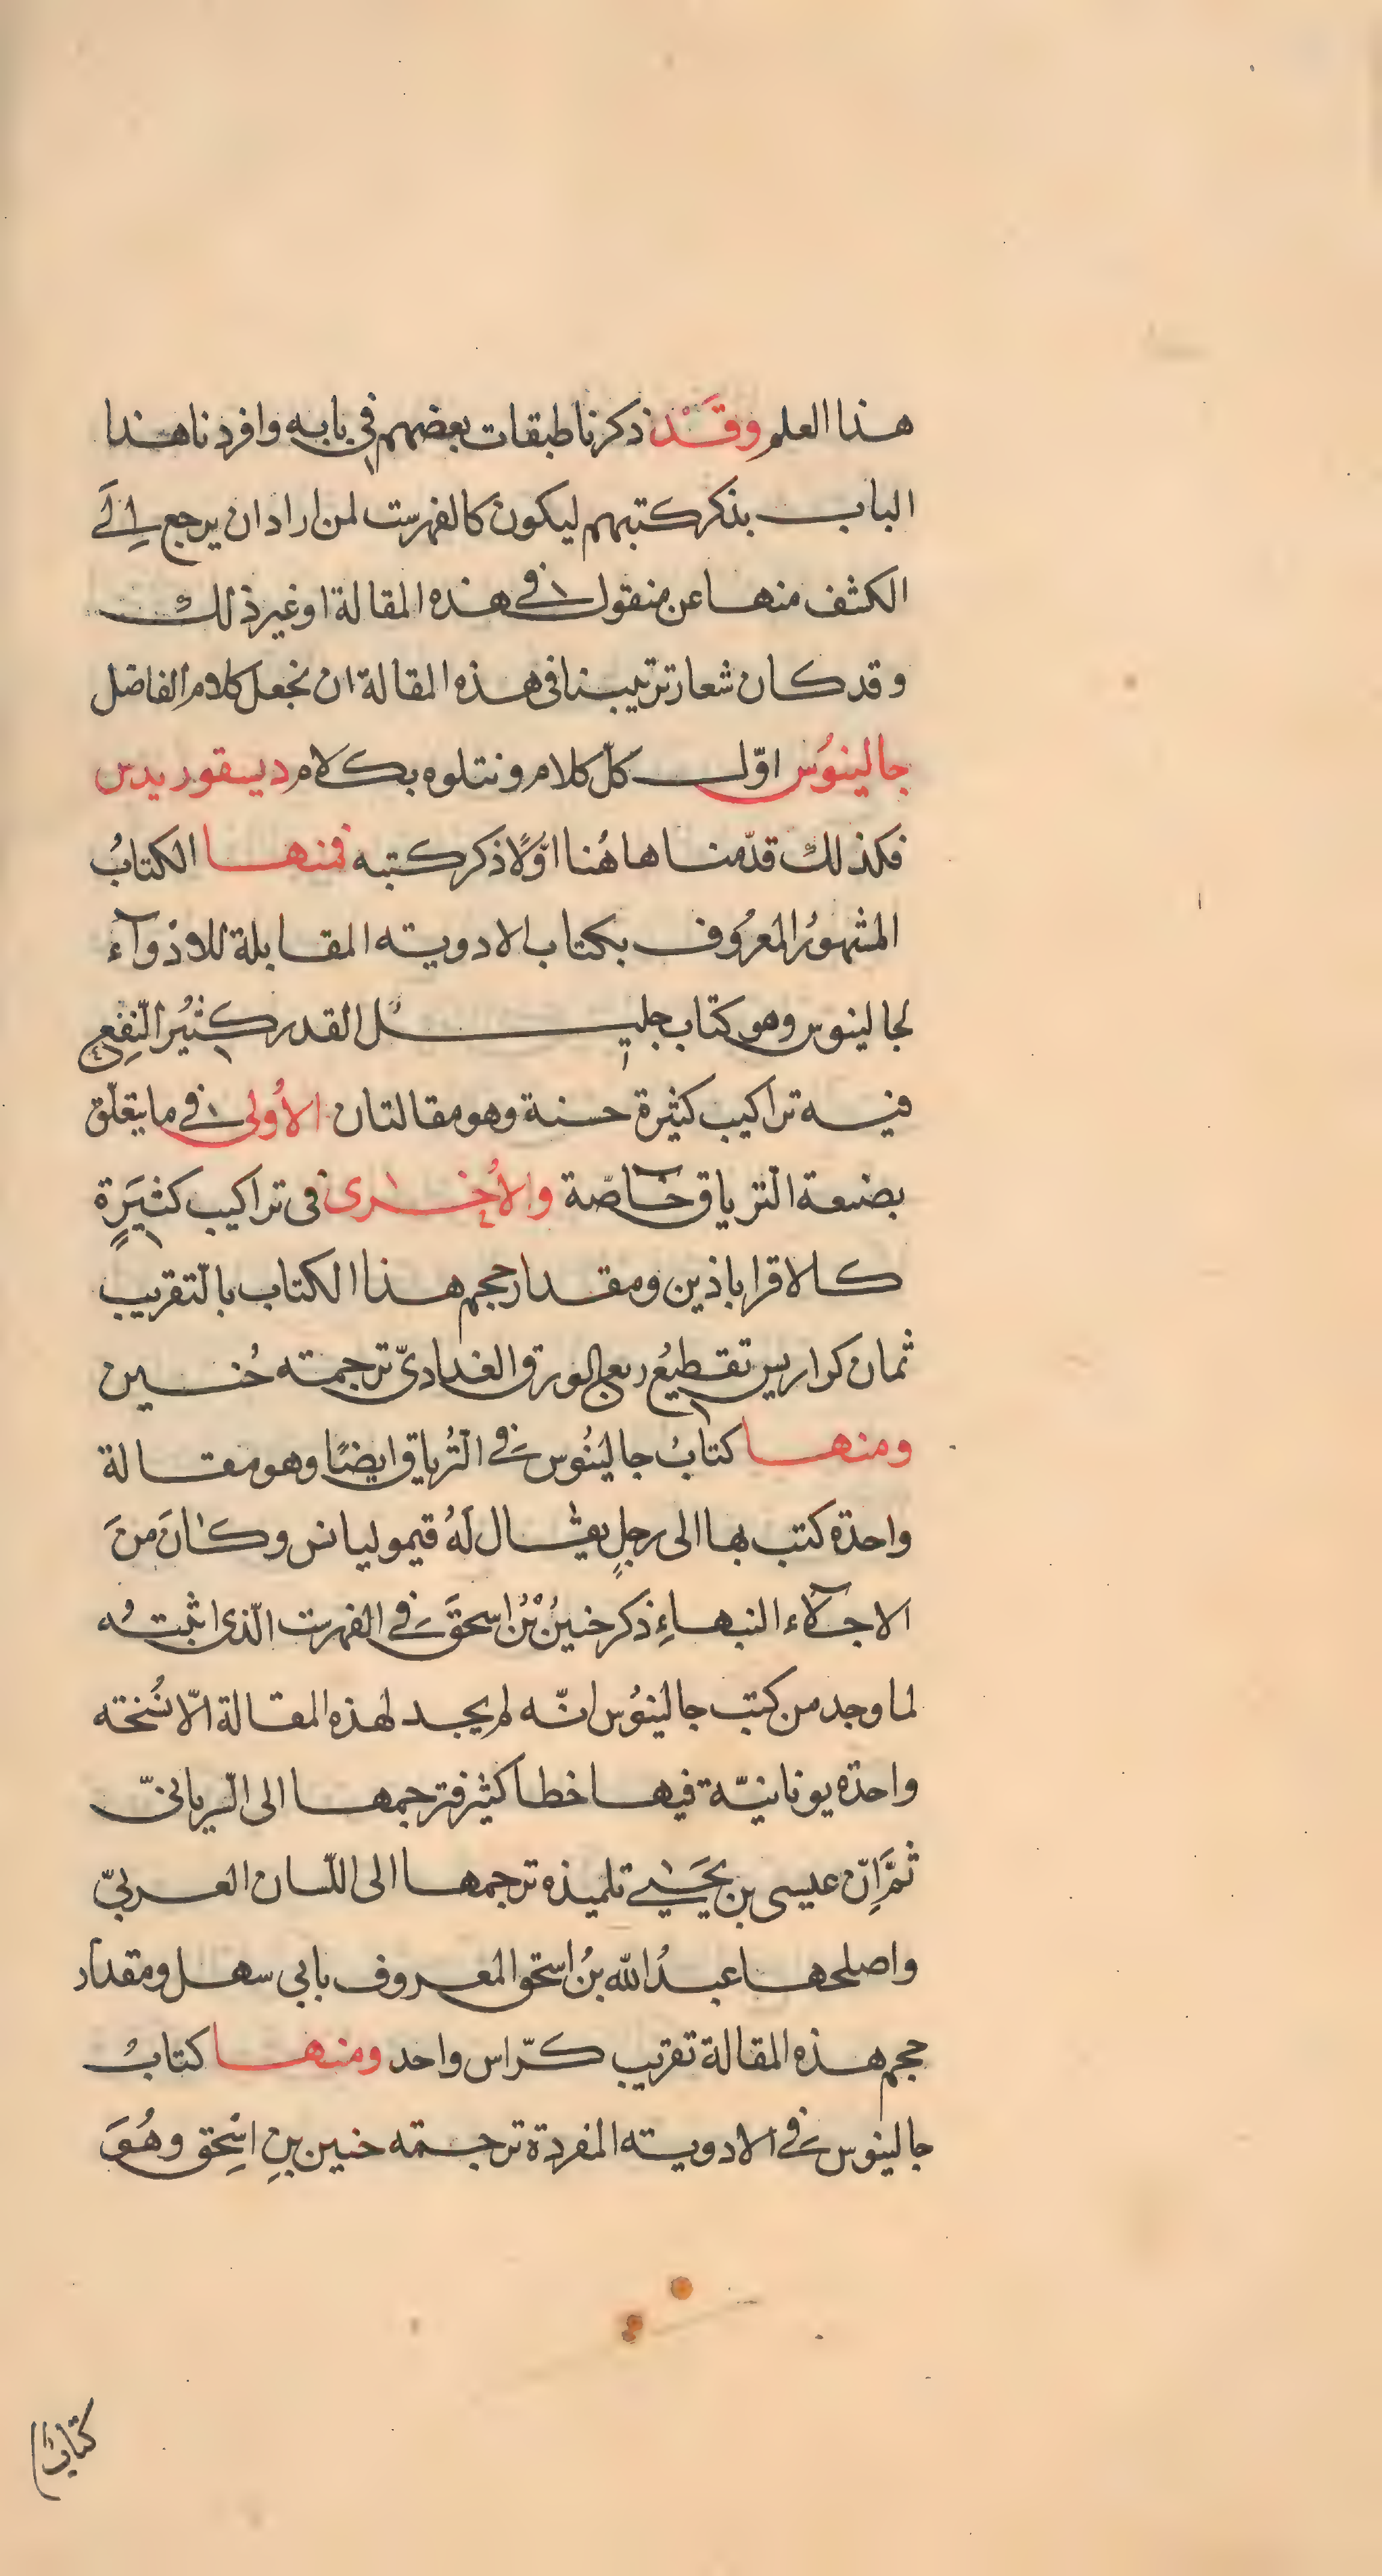 هذا العلم وقَدْ ذكرنا طبقات بعضهم فى بابه وافردنا هذا
الباب بذكر كتبهم ليكون كالفهرست لمن اراد ان يرجع اِلَى
الكشف منها عن منقول فى هذه المقالة او غير ذلك
وقد كان شعار ترتيبنا فى هذه المقالة ان نجعل كلام الفاضل
جالينوُس اوّل كلّ كلام ونتلوه بكلام ديسقوريدس
فكذلك قدّمنا هاهُنا اوّلًا ذكر كتبه فمنها الكتابُ
المشهوُر المعرُوف بكتاب الادوية المقابلة للادْوآء
لجالينوس وهو كتاب جليل القدر كثيُر النّفعِ
فيه تراكيب كثيرة حسنة وهو مقالتان الاُولى فى ما يتعلّق
بصنعة الترياق خآصّة والاُخرى فى تراكيب كثيَرةٍ
كالاقراباذين ومقدار حجم هذا الكتاب بالتّقريب
ثمان كراريس تقطيعُ ربع الورق البغداديّ ترجمة حُنين
ومنها كتابُ جالينُوس فى التّرياق ايضًا وهو مقالة
واحدة كتب بها الى رجلٍ يقال لَهُ قيموليانس وكانَ منَ
الاجلآء النبهاءِ ذكر حنينُ بْنُ اسحقَ فى الفهرست الّذى اثبتهُ
لما وجد من كتب جالينوُس انّه لم يجد لهذه المقالة الّا نُسخة
واحدة يونانيّة فيها خطا كثير فترجمها الى السّريانىّ
ثمَّ اِنّ عيسى بن يَحيى تلميذه ترجمها الى اللّسان العربىّ
واصلحها عبدُ الله بنُ اسحق المعروف بابى سهل ومقدار
حجم هذه المقالة تقريب كرّاس واحد ومنها كتابُ
جالينوس فى الادوية المفردة ترجمة حنين بنِ اسْحِق وهُوَ
كتابٌ